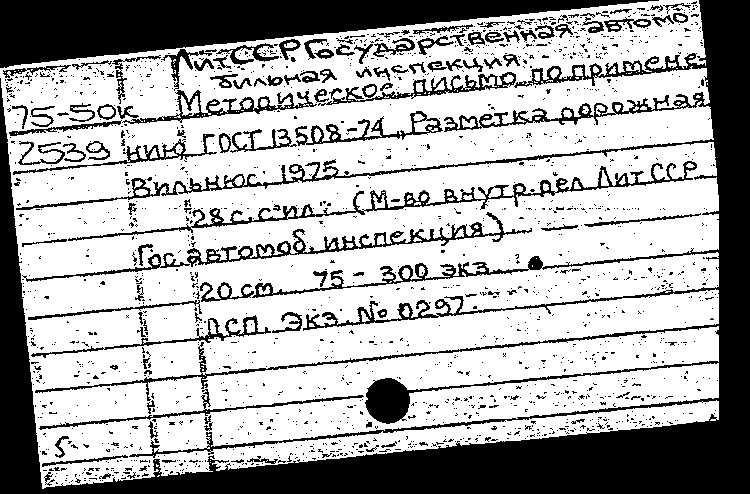 ЛитССР. Государственная автомо-
бильная инспекция.
75-50к Методическое письмо по примене-
2539 нию ГОСТ 13508-74 „Разметка дорожная
Вильнюс, 1975.
28 с. с ил. (М-во внутр. дел ЛитССР.
Гос. автомоб. инспекция).
20 cm. 75 - 300 экз.
ДСП. Экз. № 0297.
5